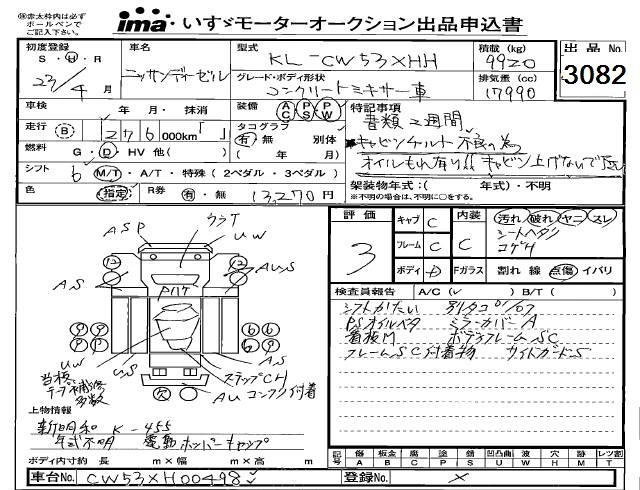 ㊟赤太枠内は必ず
ボールペンで
ご記入下さい。
ima・いすゞモーターオークション出品申込書
初度登録 S・H・R 23年4月
車名 ニッサンディーゼル
型式 KL-CW53XHH
積載(kg) 9920
出品No. 3082
グレード・ボディ形状 コンクリートミキサー車
排気量(cc) 17990
車検 年・月・抹消
装備 AC PS PW
特記事項
書類2週間
走行 (B) 276000km「 」
タコグラフ 有・無 別体 (年 月)
キャビンチルト不良の為
オイルもれ有り!! キャビン上げないで下さい
燃料 G・D・HV 他( )
シフト 6 M/T・A/T・特殊(2ペダル・3ペダル)
架装物年式:( 年式)・不明
※不明の場合は、不明に○をする。
色 指定 R券 有・無 13,270円
評価 3
キャブ C
フレーム C
ボディ D
内装 C
Fガラス
汚れ 破れ ヤニ スレ
シートヘタリ
コゲ4
割れ 線 点傷 イバリ
ASP ウラT
UW UW
12 12
AS AUS
Pハゲ
9 9 6 6
9 9 6 6
AS AS
UW US
ステップCH
当板
テープ補修
多数
欠
AU コンクリ付着
検査員報告 A/C(✓ ) B/T( )
シフトかたい 別タコ01/07
PSオイルベタ ミラーカバーA
看板M ボデーフレームSC
フレームSC付着物 サイドガードS
上物情報
新明和 K-455
年式不明 電動ホッパーキャップ
ボディ内寸約 長 m×幅 m×高 m
記号 傷A 板金B 腐C 塗P 錆S 凹凸曲U 波W 穴H 跡M レツ割T
車台No. CW53XH00498
登録No. ×